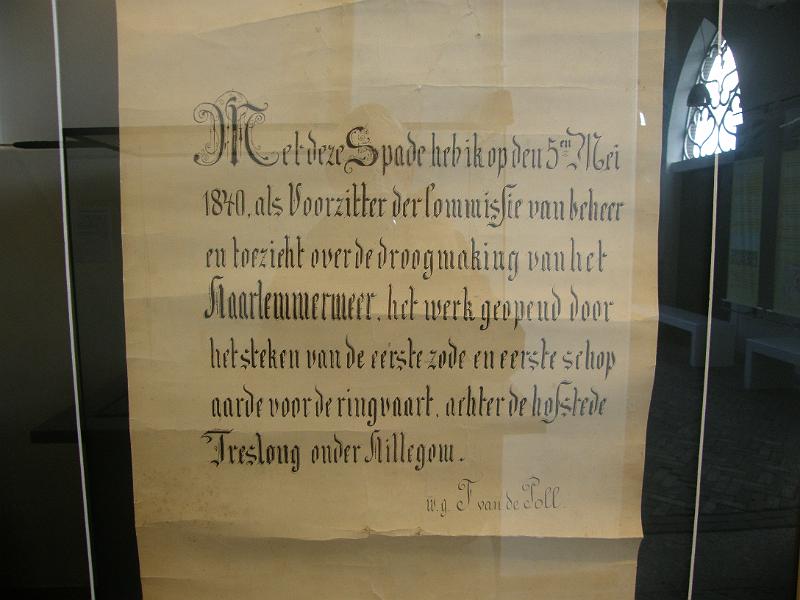 Met deze Spade heb ik op den 5en Mei
1840, als Voorzitter der Commissie van beheer
en toezicht over de droogmaking van het
Haarlemmermeer, het werk geopend door
het steken van de eerste zode en eerste schop
aarde voor de ringvaart, achter de hofstede
Treslong onder Hillegom.
w.g. F van de Poll.